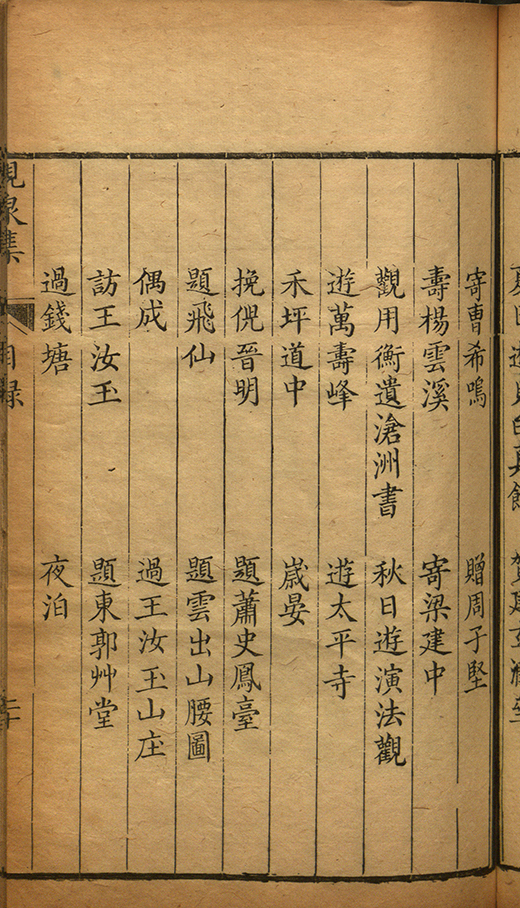 寄曹希鳴　贈周子堅
壽楊雲溪　寄梁建中
觀用衡遺滄洲書　秋日遊演法觀
遊萬壽峰　遊太平寺
禾坪道中　歳晏
挽倪晉明　題蕭史鳳臺
題飛仙　題雲出山腰圖
偶成　過王汝玉山庄
訪王汝玉　題東郭艸堂
過錢塘　夜泊
目録